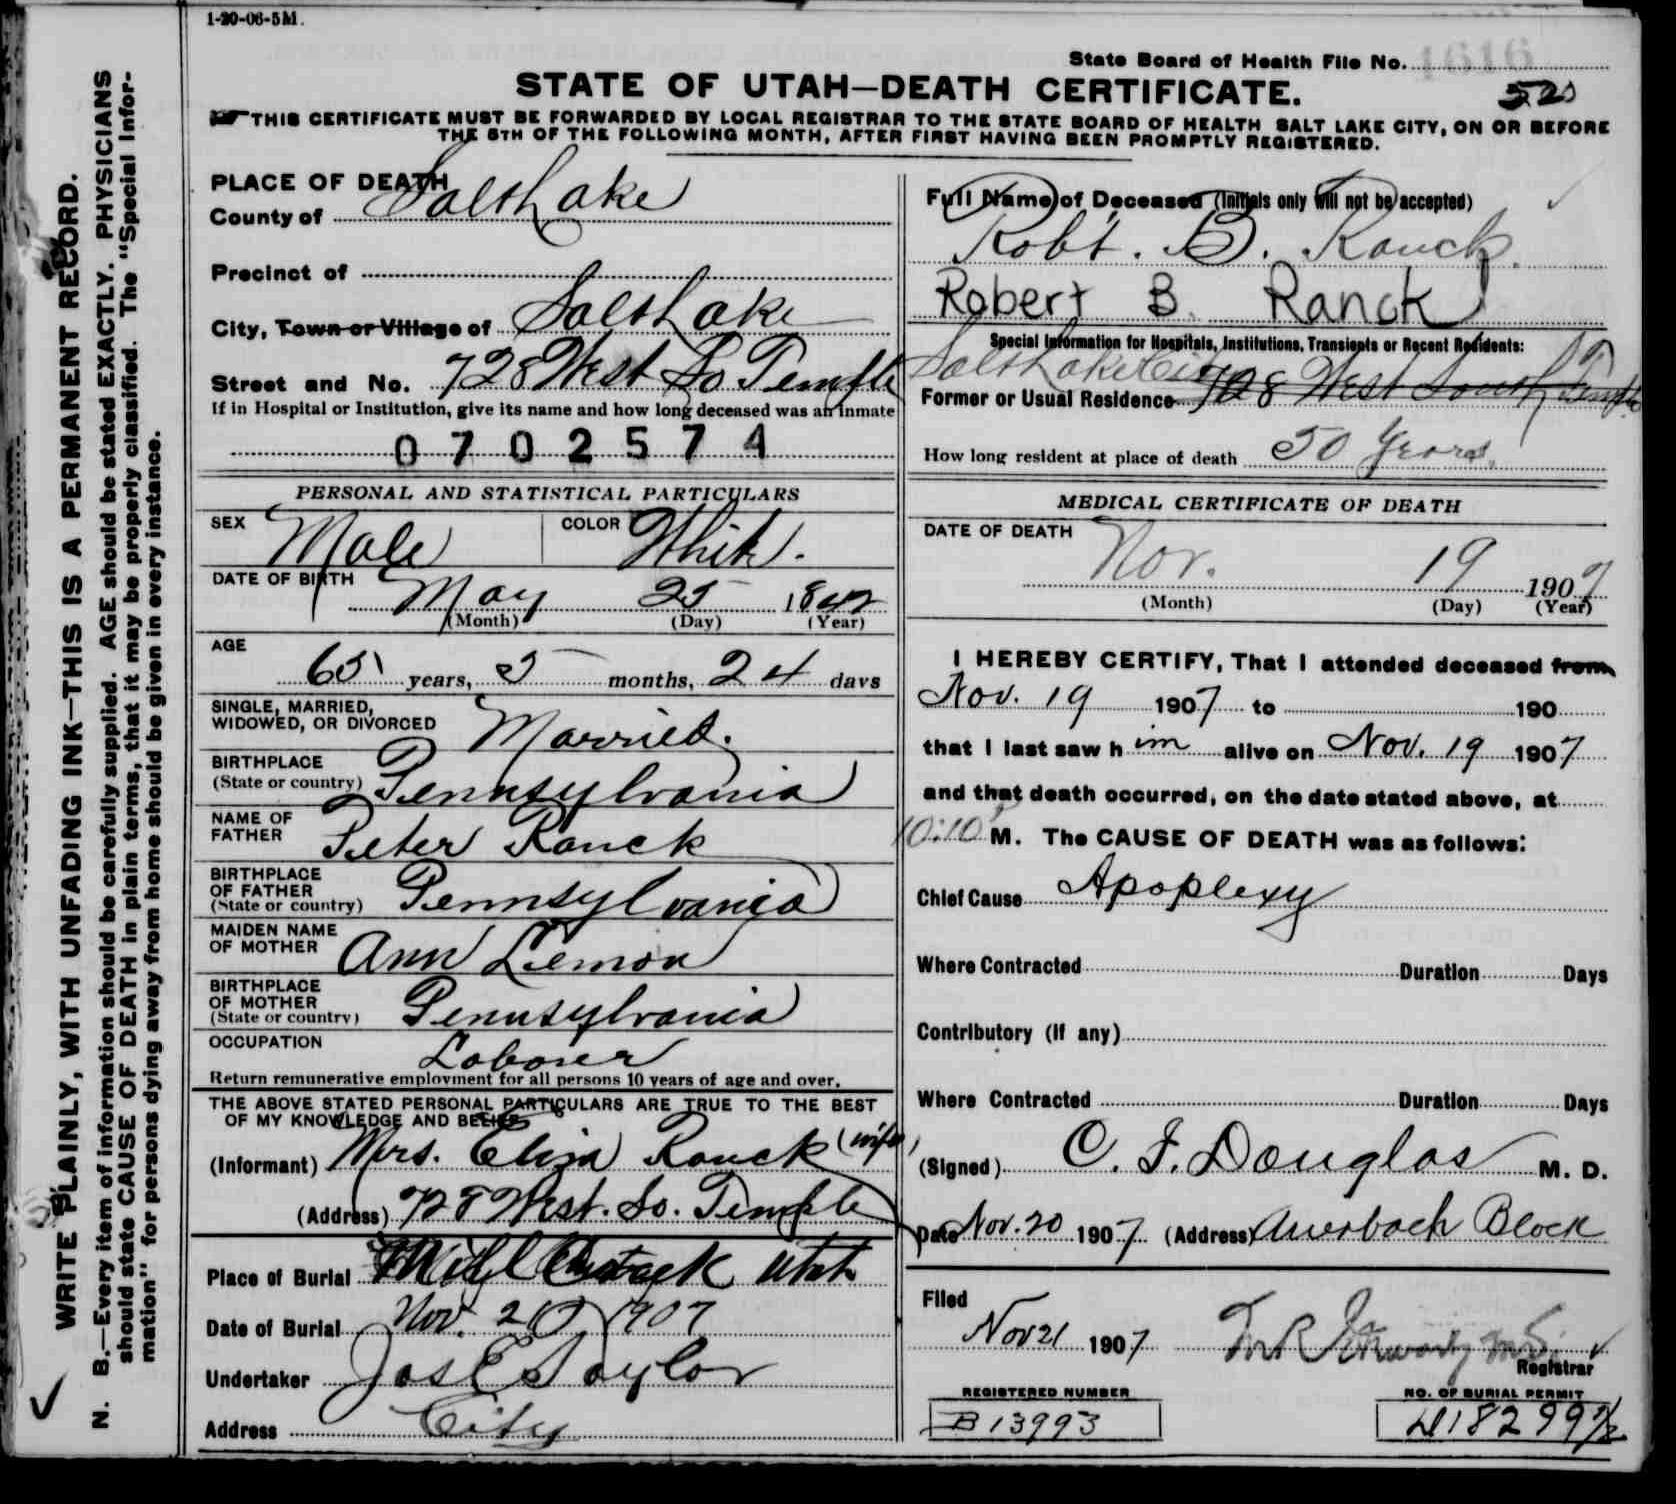 1-20-06-5M.
State Board of Health File No. 1616
STATE OF UTAH—DEATH CERTIFICATE.
THIS CERTIFICATE MUST BE FORWARDED BY LOCAL REGISTRAR TO THE STATE BOARD OF HEALTH SALT LAKE CITY, ON OR BEFORE
THE 5TH OF THE FOLLOWING MONTH, AFTER FIRST HAVING BEEN PROMPTLY REGISTERED.
WRITE PLAINLY, WITH UNFADING INK—THIS IS A PERMANENT RECORD.
N. B.—Every item of information should be carefully supplied. AGE should be stated EXACTLY. PHYSICIANS
should state CAUSE OF DEATH in plain terms, that it may be properly classified. The "Special Infor-
mation" for persons dying away from home should be given in every instance.
PLACE OF DEATH
County of Salt Lake
Precinct of
City, Town or Village of Salt Lake
Street and No. 728 West So Temple
If in Hospital or Institution, give its name and how long deceased was an inmate
0702574
PERSONAL AND STATISTICAL PARTICULARS
SEX Male COLOR White.
DATE OF BIRTH May 25 1842
(Month) (Day) (Year)
AGE
65 years, 5 months, 24 days
SINGLE, MARRIED,
WIDOWED, OR DIVORCED Married.
BIRTHPLACE
(State or country) Pennsylvania
NAME OF
FATHER Peter Ranck
BIRTHPLACE
OF FATHER
(State or country) Pennsylvania
MAIDEN NAME
OF MOTHER Ann Lemon
BIRTHPLACE
OF MOTHER
(State or country) Pennsylvania
OCCUPATION Laborer
Return remunerative employment for all persons 10 years of age and over.
THE ABOVE STATED PERSONAL PARTICULARS ARE TRUE TO THE BEST
OF MY KNOWLEDGE AND BELIEF
(Informant) Mrs. Eliza Ranck (wife)
(Address) 728 West. So. Temple
Place of Burial Utah
Date of Burial Nov. 1907
Undertaker Jos E Taylor
Address City
Full Name of Deceased (Initials only will not be accepted)
Robt. B. Ranck.
Robert B. Ranck
Special Information for Hospitals, Institutions, Transients or Recent Residents:
Salt Lake City
Former or Usual Residence 728 West South Temple
How long resident at place of death 50 Years.
MEDICAL CERTIFICATE OF DEATH
DATE OF DEATH
Nov. 19 1907
(Month) (Day) (Year)
I HEREBY CERTIFY, That I attended deceased from
Nov. 19 1907 to 190
that I last saw him alive on Nov. 19 1907
and that death occurred, on the date stated above, at
10:10 M. The CAUSE OF DEATH was as follows:
Chief Cause Apoplexy
Where Contracted Duration Days
Contributory (if any)
Where Contracted Duration Days
(Signed) C. F. Douglas M. D.
Date Nov. 20 1907 (Address) Auerbach Block
Filed
Nov 21 1907
Registrar
REGISTERED NUMBER
B 13993
NO. OF BURIAL PERMIT